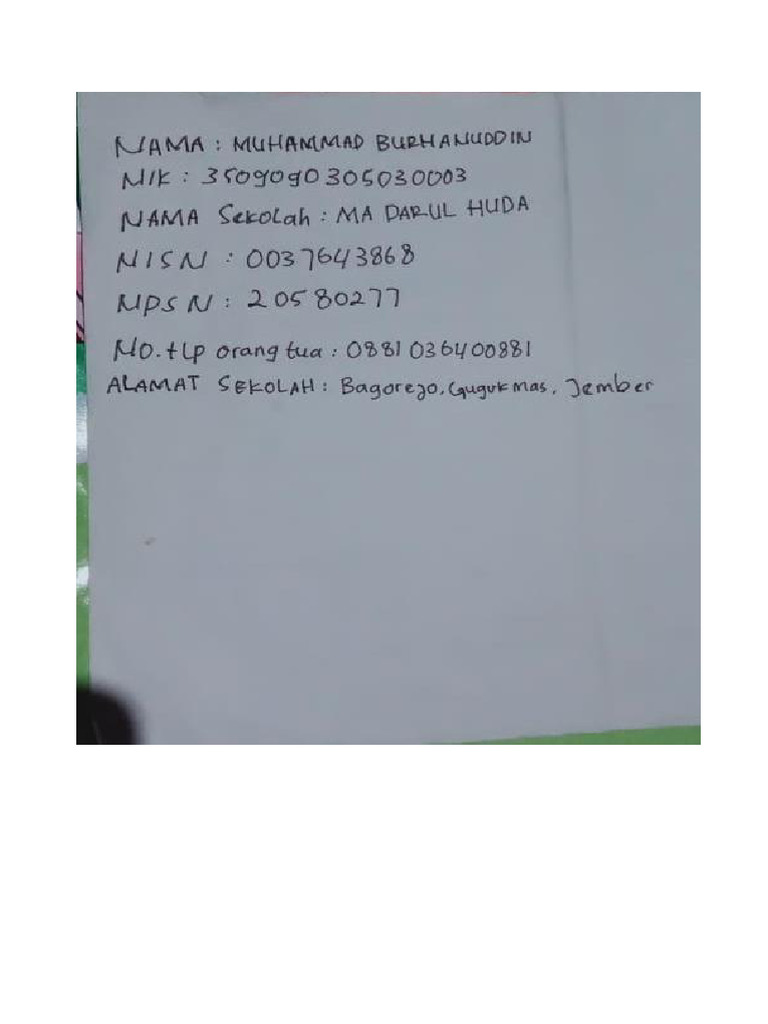 NAMA : MUHAMMAD BURHANUDDIN
NIK : 3509090305030003
NAMA Sekolah : MA DARUL HUDA
NISN : 0037643868
NPSN : 20580277
NO. tlp orang tua : 0881036400881
ALAMAT SEKOLAH : Bagorejo, Gugukmas, Jember